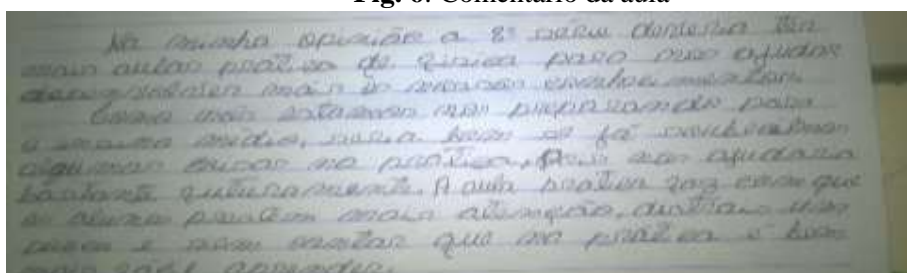 Fig. 6: Comentário da aula
Na minha opinião a 8ª série deveria ter
mais aulas pratica de física para nos ajudar
mais os nossos
Como nós estamos nos preparando para
o ensino médio, seria bom se já soubessemos
algumas coisas na pratica, Pois nos ajudaria
bastante futuramente. A aula pratica faz com que
os alunos prestem mais atenção,
e sem contar que na pratica é bem
mais facil aprender.